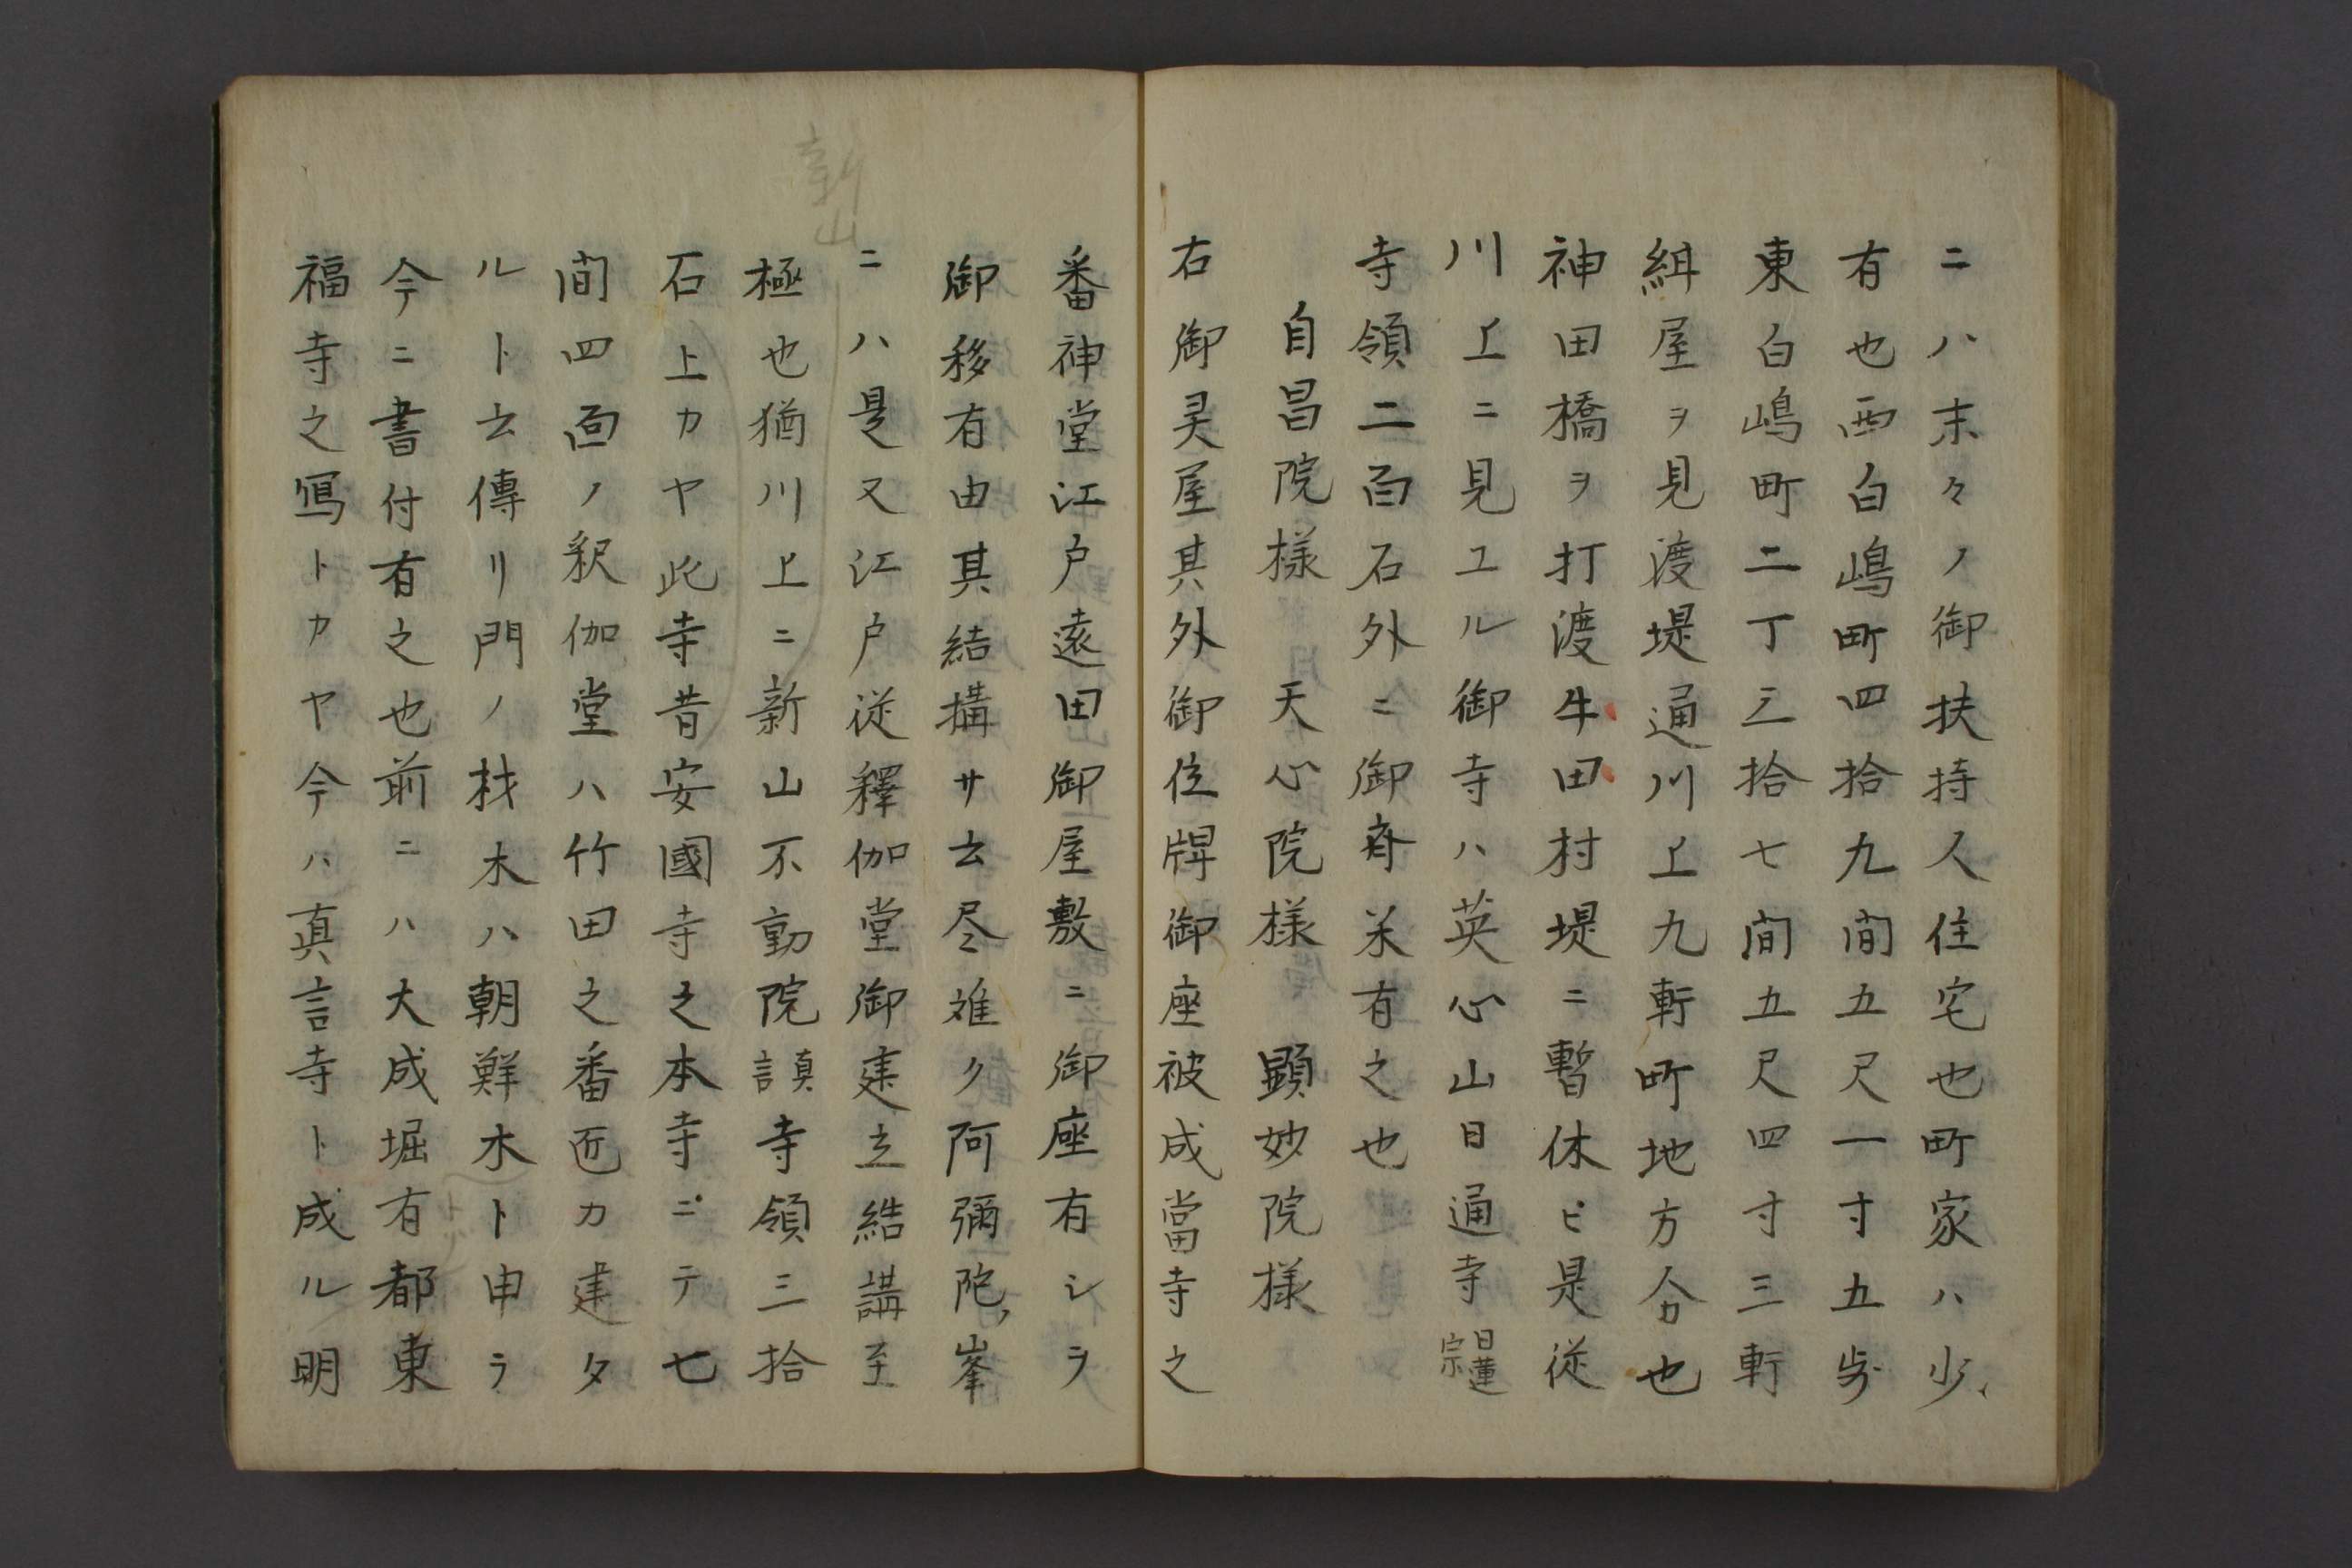 ニハ末々ノ御扶持人住宅也町家ハ少〻
有也西白嶋町四拾九間五尺一寸五歩
東白嶋町二丁三拾七間五尺四寸三軒
屋ヲ見渡堤通川上九軒町地方分也
神田橋ヲ打渡牛田村堤ニ暫休ヒ是従
川上ニ見エル御寺ハ英心山日通寺日蓮宗
寺領二百石外ニ御斉米有之也
自昌院様 天心院様 顕妙院様
右御灵屋其外御位牌御座被成當寺之
新山
番神堂江戸遠田御屋敷ニ御座有シヲ
御移有由其結搆サ云尽难ク阿彌陀峯
ニハ是又江戸従釋伽堂御建立結講至
極也猶川上ニ新山不動院真言寺領三拾
石上カヤ此寺昔安國寺之本寺ニテ七
間四面ノ釈伽堂ハ竹田之番匠カ建タ
ルト云傳リ門ノ材木ハ朝鮮木ト申ヲ
今ニ書付有之也前ニハ大成堀有都東
福寺之冩トカヤ今ハ真言寺ト成ル明